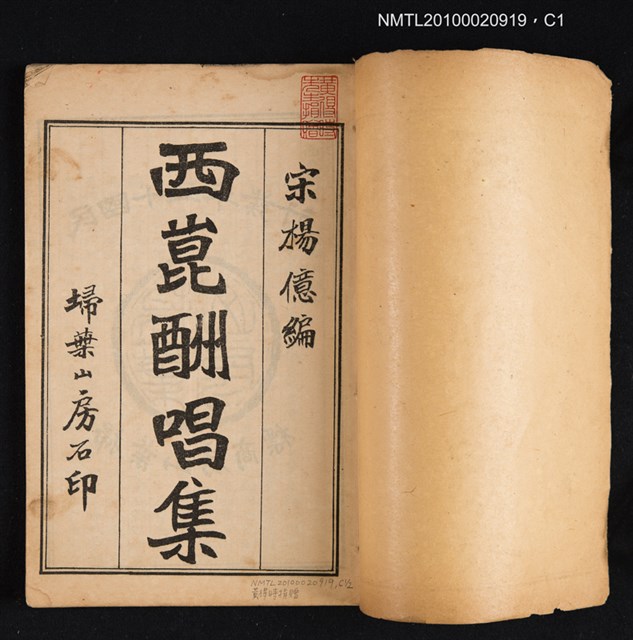 NMTL20100020919，C1
宋楊億編
西崑酬唱集
埽葉山房石印
NMTL20100020919, C1
黃得時捐贈